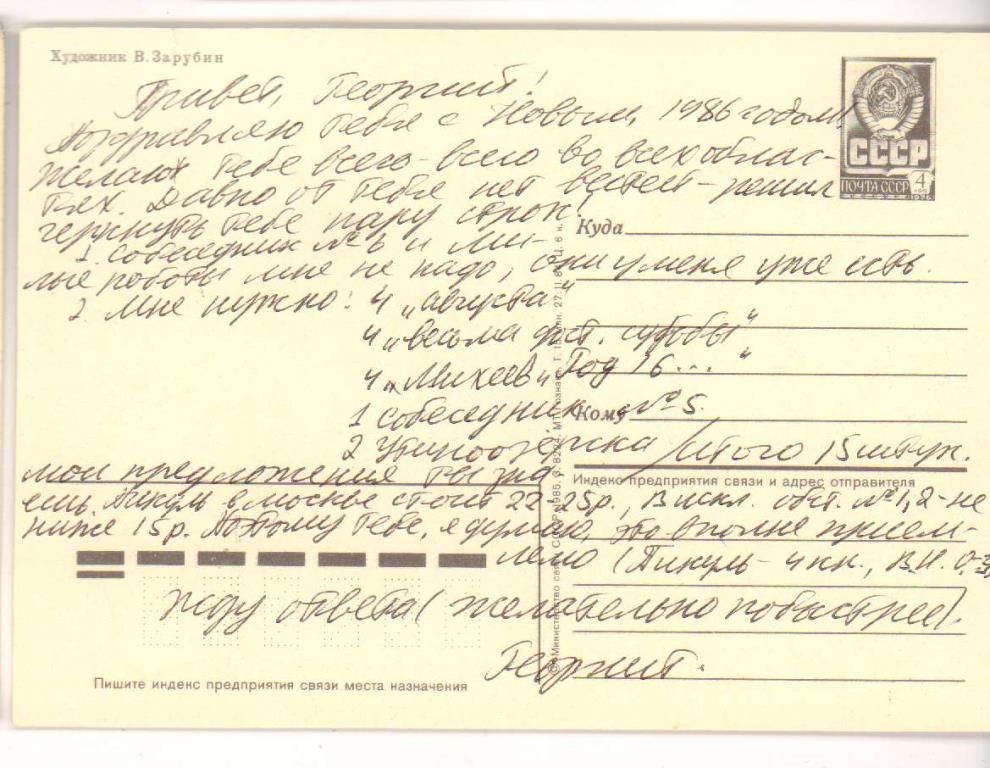 Художник В.Зарубин
Привет, Георгий!
Поздравляю тебя с Новым, 1986 годом!
Желаю тебе всего-всего во всех облас-
тях. Давно от тебя нет вестей - решил
черкнуть тебе пару строк!
1. Собеседник № 6 и Ми-
лые роботы мне не надо, они у меня уже есть.
2. Мне нужно: 4 "августа"
4 "весьма дост. судьбы"
4 "Михеев" "Год 16..."
1 Собеседник №5.
2 /Итого 15 штук.
мои предложения ты зна
ешь. Пикуль в москве стоит 22-25р., В искл. обст. №1,2-не
ниже 15р. Поэтому тебе, я думаю, это вполне прием-
лемо (Пикуль - 4 кн., В.И. 0-3)
Жду ответа (желательно побыстрее).
Георгий.
СССР
ПОЧТА СССР 4
Куда
Кому
Индекс предприятия связи и адрес отправителя
Пишите индекс предприятия связи места назначения
© Министерство связи СССР 1985.